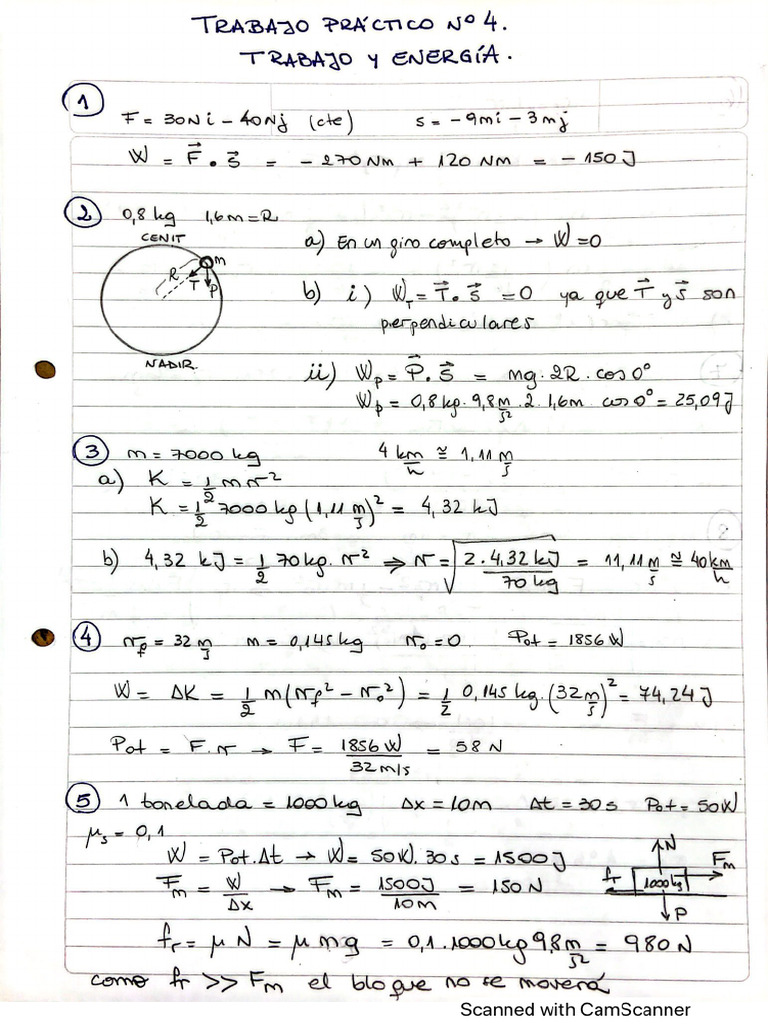 TRABAJO PRÁCTICO Nº 4.
TRABAJO Y ENERGÍA.
1
F = 30N i - 40N j (cte) s = -9m i - 3m j
W = F⃗ . s⃗ = - 270 Nm + 120 Nm = - 150 J
2 0,8 kg 1,6m = R
CENIT
m
R
T
P
NADIR
a) En un giro completo → W = 0
b) i) W_T = T⃗ . s⃗ = 0 ya que T⃗ y s⃗ son
perpendiculares
ii) W_P = P⃗ . s⃗ = mg . 2R . cos 0°
W_P = 0,8 kg . 9,8 m/s² . 2 . 1,6m . cos 0° = 25,09 J
3 m = 7000 kg 4 km/h ≅ 1,11 m/s
a) K = 1/2 m v²
K = 1/2 7000 kg (1,11 m/s)² = 4,32 kJ
b) 4,32 kJ = 1/2 70 kg . v² ⇒ v = √(2 . 4,32 kJ / 70 kg) = 11,11 m/s ≅ 40 km/h
4 v_f = 32 m/s m = 0,145 kg v_0 = 0 Pot = 1856 W
W = ΔK = 1/2 m (v_f² - v_0²) = 1/2 0,145 kg . (32 m/s)² = 74,24 J
Pot = F . v → F = 1856 W / 32 m/s = 58 N
5 1 tonelada = 1000 kg Δx = 10m Δt = 30 s Pot = 50 W
μ_s = 0,1
W = Pot . Δt → W = 50 W . 30 s = 1500 J
F_m = W / Δx → F_m = 1500 J / 10 m = 150 N
N
F_m
fr
1000 kg
P
fr = μ N = μ m g = 0,1 . 1000 kg 9,8 m/s² = 980 N
como fr >> F_m el bloque no se moverá
Scanned with CamScanner